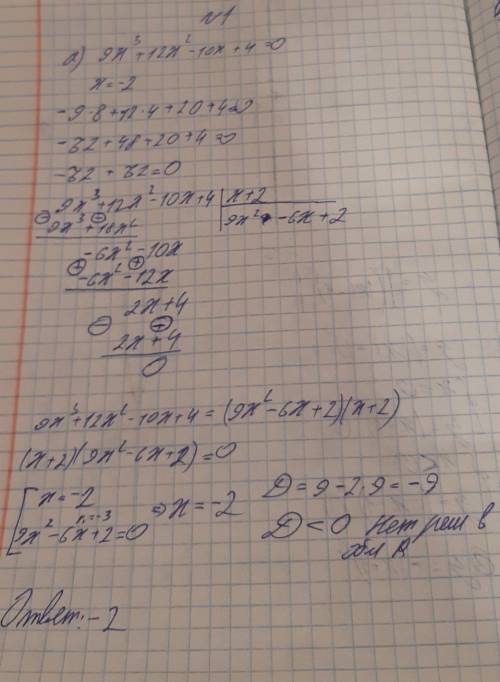 N1
а) 9x³+12x²-10x+4=0
x=-2
-9·8+12·4+20+4=0
-72+48+20+4=0
-72+72=0
9x³+12x²-10x+4 | x+2
9x³+18x² | 9x²-6x+2
-6x²-10x
-6x²-12x
2x+4
2x+4
0
9x³+12x²-10x+4=(9x²-6x+2)(x+2)
(x+2)(9x²-6x+2)=0
[ x=-2 ⇒ x=-2 D=9-2·9=-9
k=-3
9x²-6x+2=0 D<0 Нет реш в
обл R
Ответ: -2